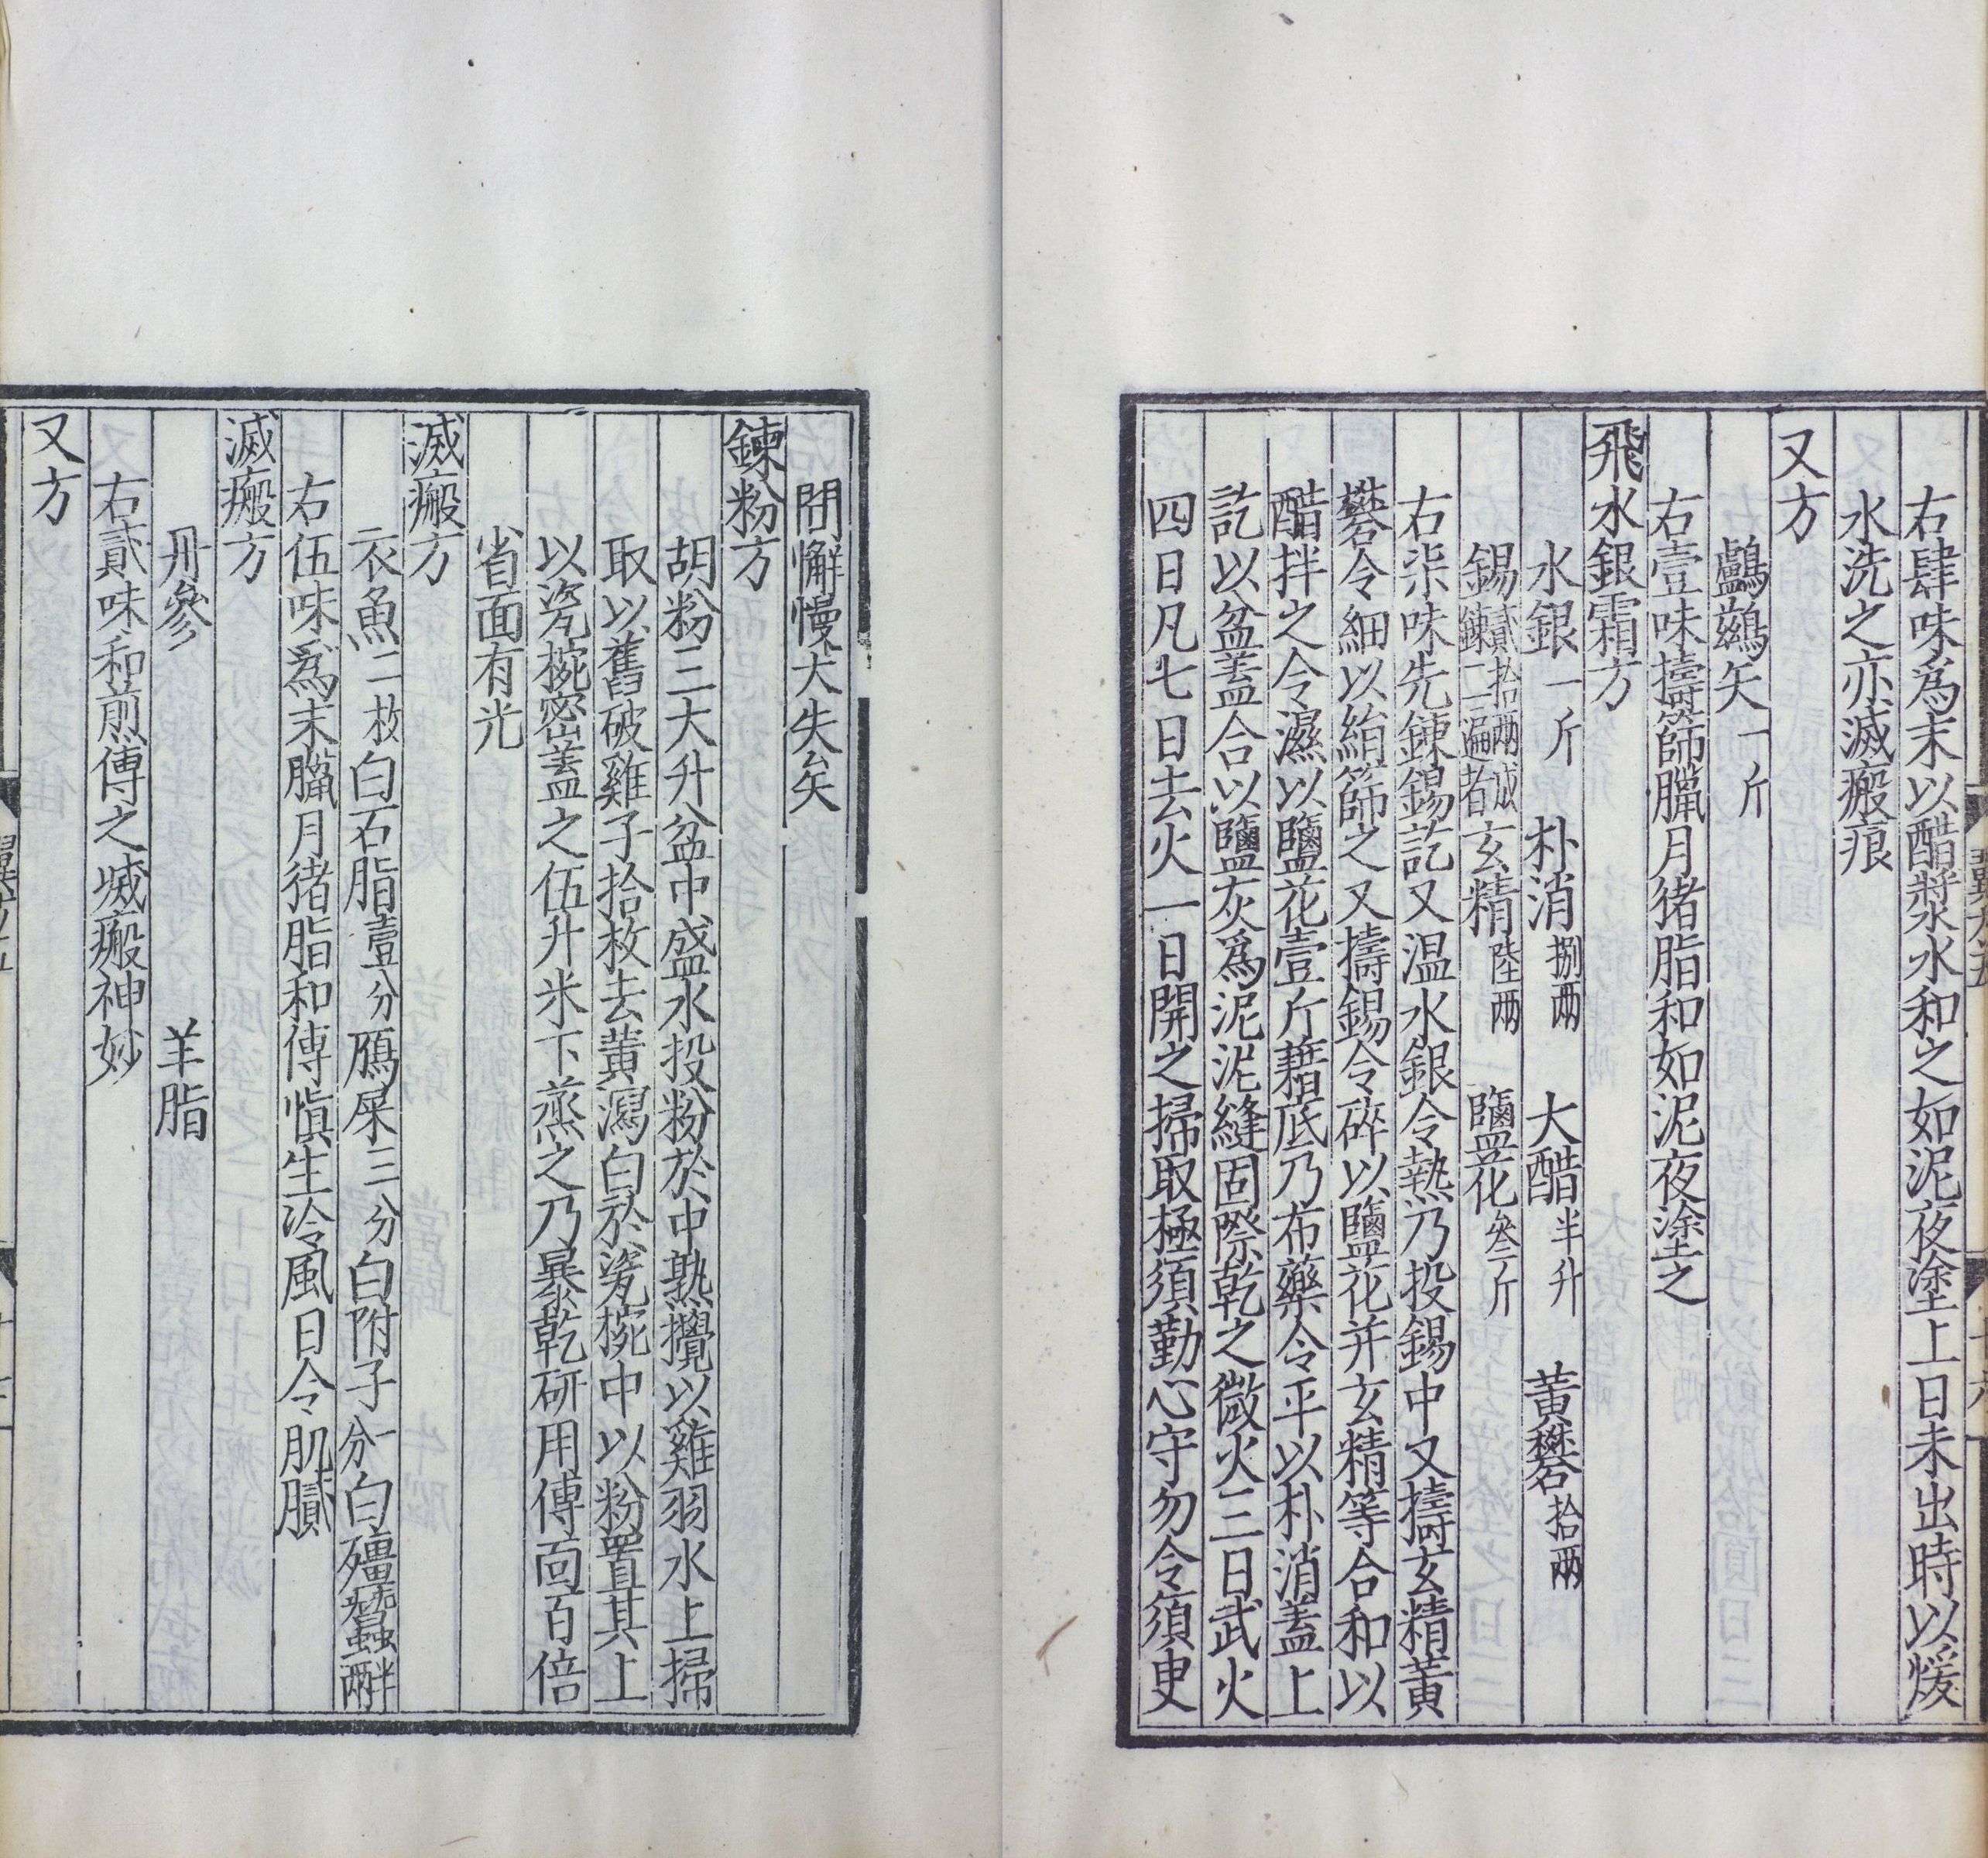 右肆味為末以醋漿水和之如泥夜塗上日未出時以煖
水洗之亦滅瘢痕
又方
鸕鷀矢一斤
右壹味擣篩臘月猪脂和如泥夜塗之
飛水銀霜方
水銀一斤 朴消捌兩 大醋半升 黃礬拾兩
錫貳拾兩成鍊二遍者 玄精陸兩 鹽花叁斤
右柒味先鍊錫訖又温水銀令熱乃投錫中又擣玄精黃
礬令細以絹篩之又擣錫令碎以鹽花并玄精等合和以
醋拌之令濕以鹽花壹斤藉底乃布藥令平以朴消蓋上
訖以盆蓋合以鹽灰為泥泥縫固際乾之微火三日武火
四日凡七日去火一日開之掃取極須勤心守勿令須臾
間懈慢大失矣
鍊粉方
胡粉三大升盆中盛水投粉於中熟攪以雞羽水上掃
取以舊破雞子拾枚去黃瀉白於瓷椀中以粉置其上
以瓷椀密蓋之伍升米下蒸之乃暴乾研用傅面百倍
省面有光
滅瘢方
衣魚二枚白石脂壹分鴈屎三分白附子一分白殭蠶半兩
右伍味為末臘月猪脂和傅慎生冷風日令肌膩
滅瘢方
丹參 羊脂
右貳味和煎傅之滅瘢神妙
又方